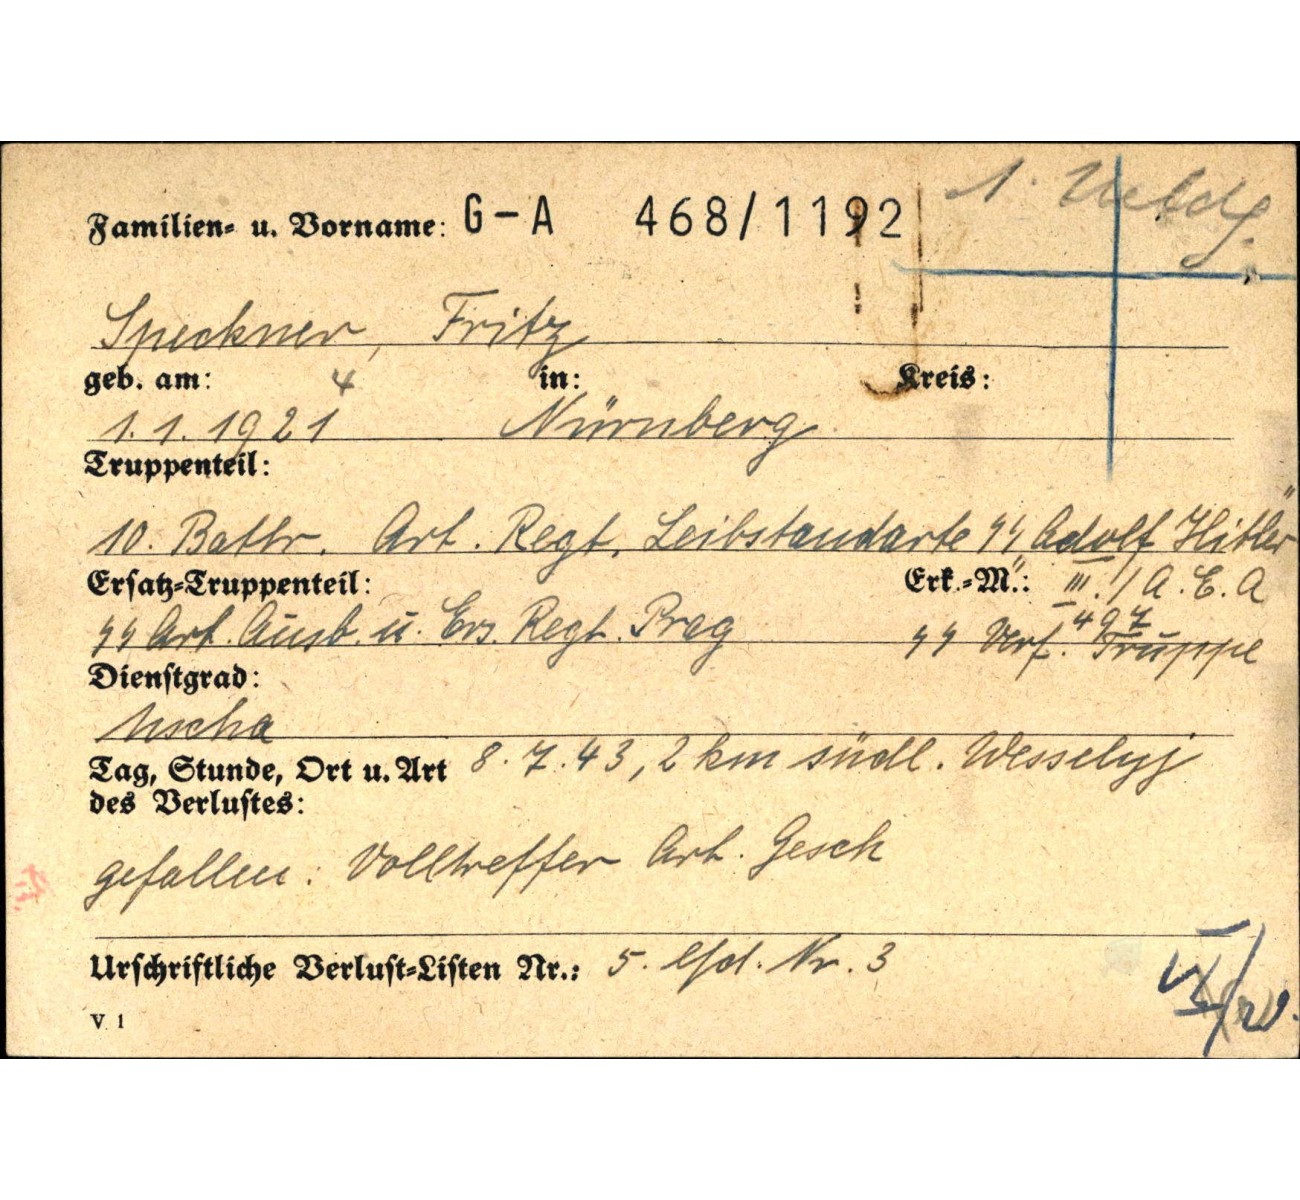 Familien- u. Vorname: G-A 468/1192
Speckner, Fritz
geb. am: 4 in: Kreis:
1.1.1921 Nürnberg
Truppenteil:
10. Battr. Art. Regt. Leibstandarte SS "Adolf Hitler"
Ersatz-Truppenteil: Erk.-M.: III./A.E.A
SS Art. Ausb. u. Ers. Regt. Prag SS Verf. Truppe
497
Dienstgrad:
Uscha
Tag, Stunde, Ort u. Art 8.7.43, 2 km südl. Wesselyj
des Verlustes:
gefallen: Volltreffer Art. Gesch
Urschriftliche Verlust-Listen Nr.: 5. lfd. Nr. 3
V 1